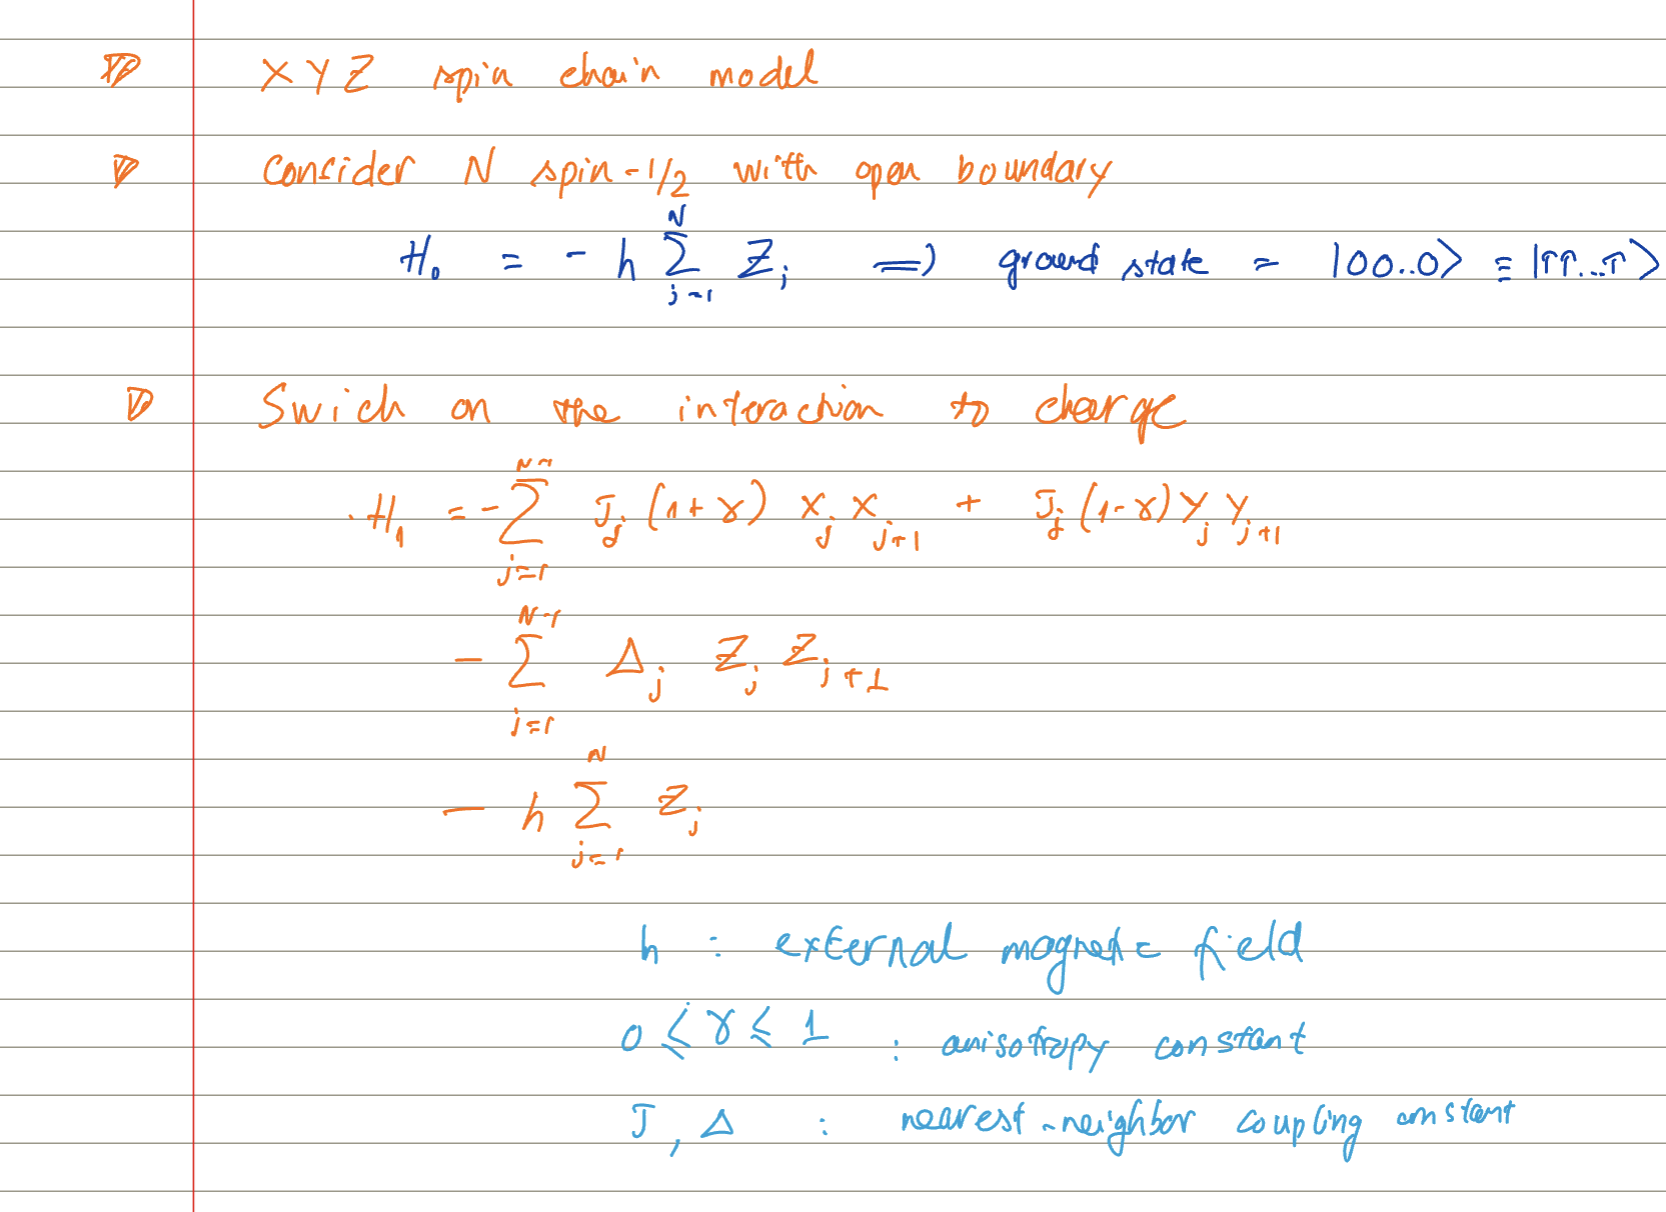 XYZ spin chain model
Consider N spin-1/2 with open boundary
H₀ = - h ∑_{j=1}^{N} Z_j ⟹ ground state = |00..0⟩ ≡ |↑↑...↑⟩
Swich on the interaction to charge
H₁ = - ∑_{j=1}^{N-1} J_j (1+γ) X_j X_{j+1} + J_j (1-γ) Y_j Y_{j+1}
- ∑_{j=1}^{N-1} Δ_j Z_j Z_{j+1}
- h ∑_{j=1}^{N} Z_j
h : external magnetic field
0 ≤ γ ≤ 1 : anisotropy constant
J, Δ : nearest-neighbor coupling constant